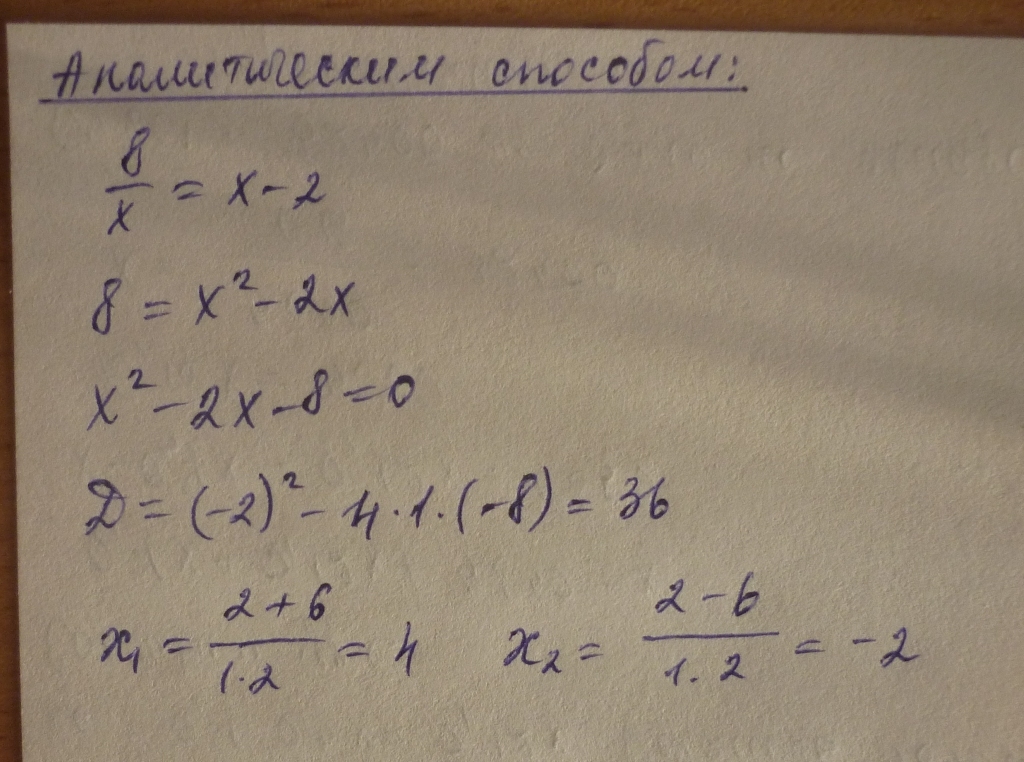 Аналитическим способом:
8/x = x - 2
8 = x² - 2x
x² - 2x - 8 = 0
D = (-2)² - 4·1·(-8) = 36
x₁ = (2 + 6)/(1·2) = 4 x₂ = (2 - 6)/(1·2) = -2